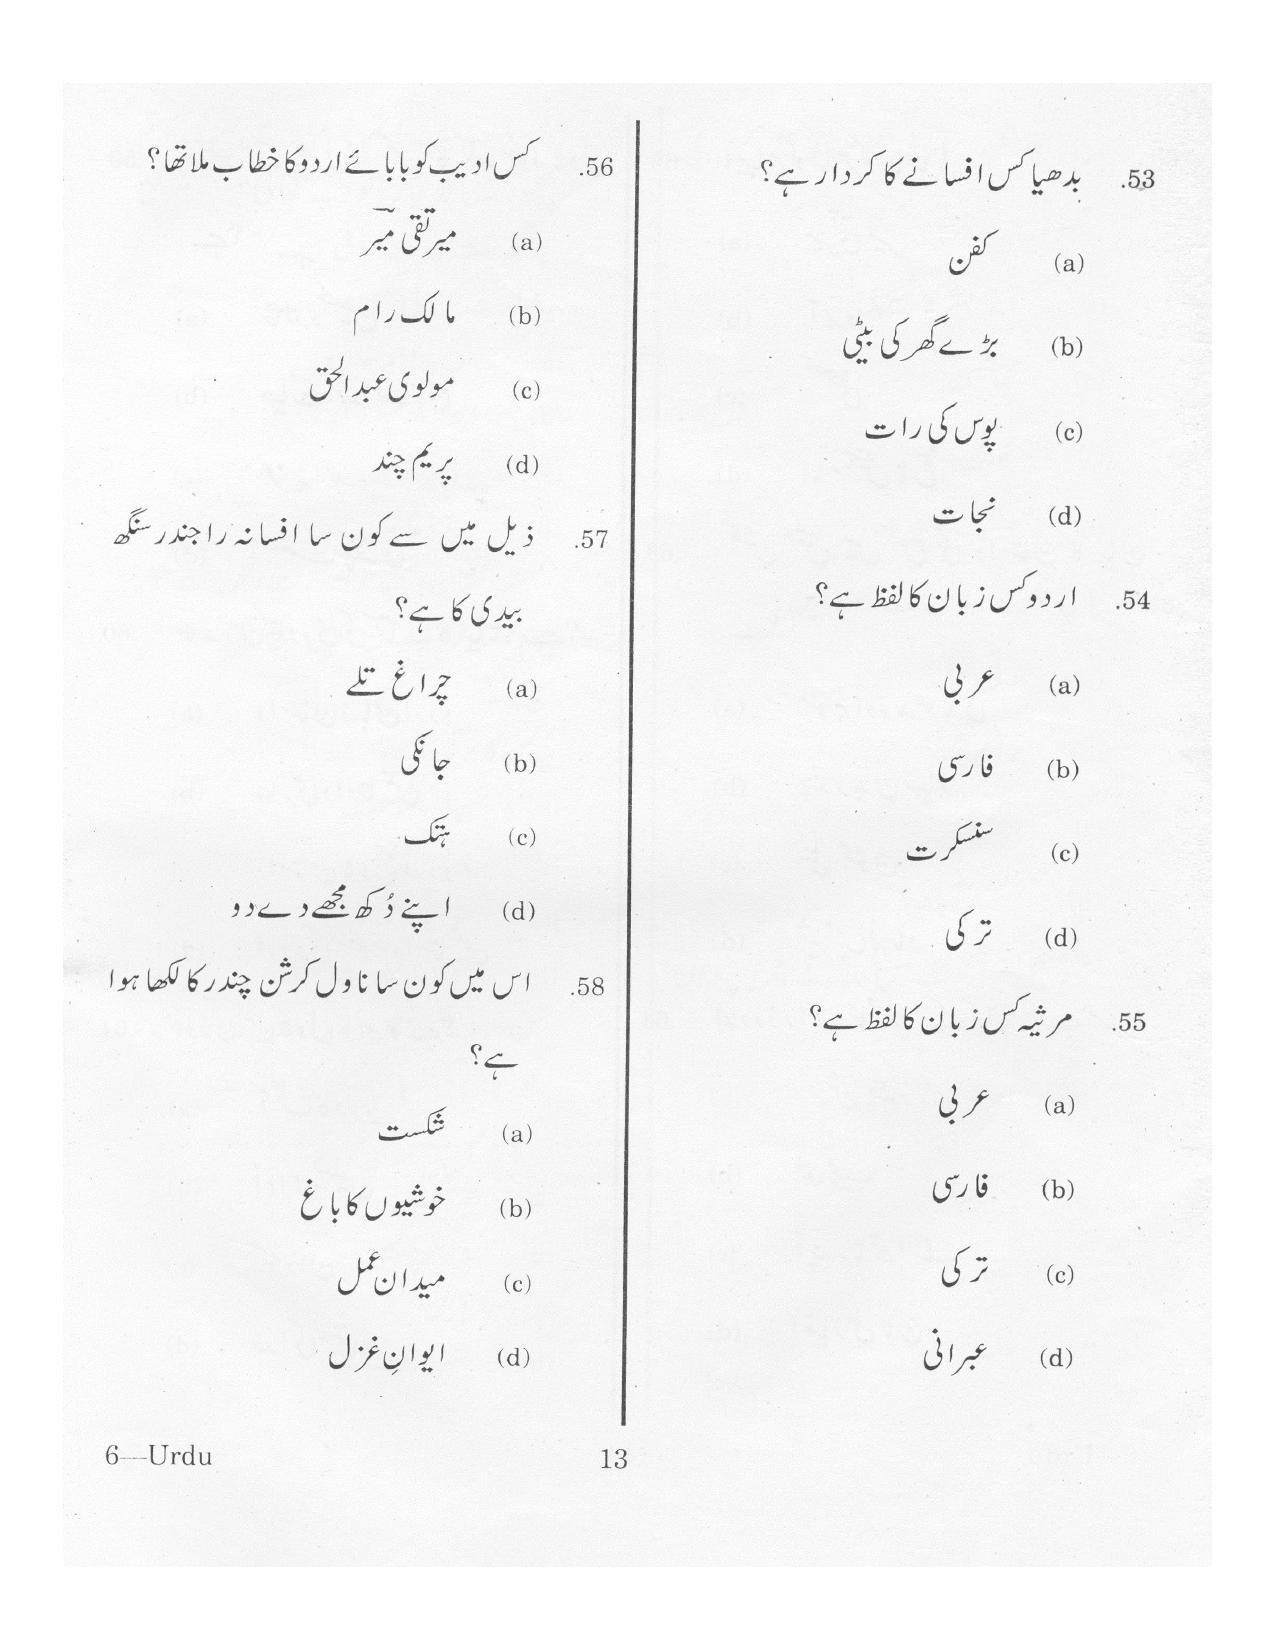 53. بدھیا کس افسانے کا کردار ہے؟
(a) کفن
(b) بڑے گھر کی بیٹی
(c) پوس کی رات
(d) نجات
54. اردو کس زبان کا لفظ ہے؟
(a) عربی
(b) فارسی
(c) سنسکرت
(d) ترکی
55. مرثیہ کس زبان کا لفظ ہے؟
(a) عربی
(b) فارسی
(c) ترکی
(d) عبرانی
56. کس ادیب کو بابائے اردو کا خطاب ملا تھا؟
(a) میر تقی میر
(b) مالک رام
(c) مولوی عبدالحق
(d) پریم چند
57. ذیل میں سے کون سا افسانہ راجندر سنگھ
بیدی کا ہے؟
(a) چراغ تلے
(b) جانکی
(c) ہتک
(d) اپنے دُکھ مجھے دے دو
58. اس میں کون سا ناول کرشن چندر کا لکھا ہوا
ہے؟
(a) شکست
(b) خوشیوں کا باغ
(c) میدان عمل
(d) ایوانِ غزل
6—Urdu
13